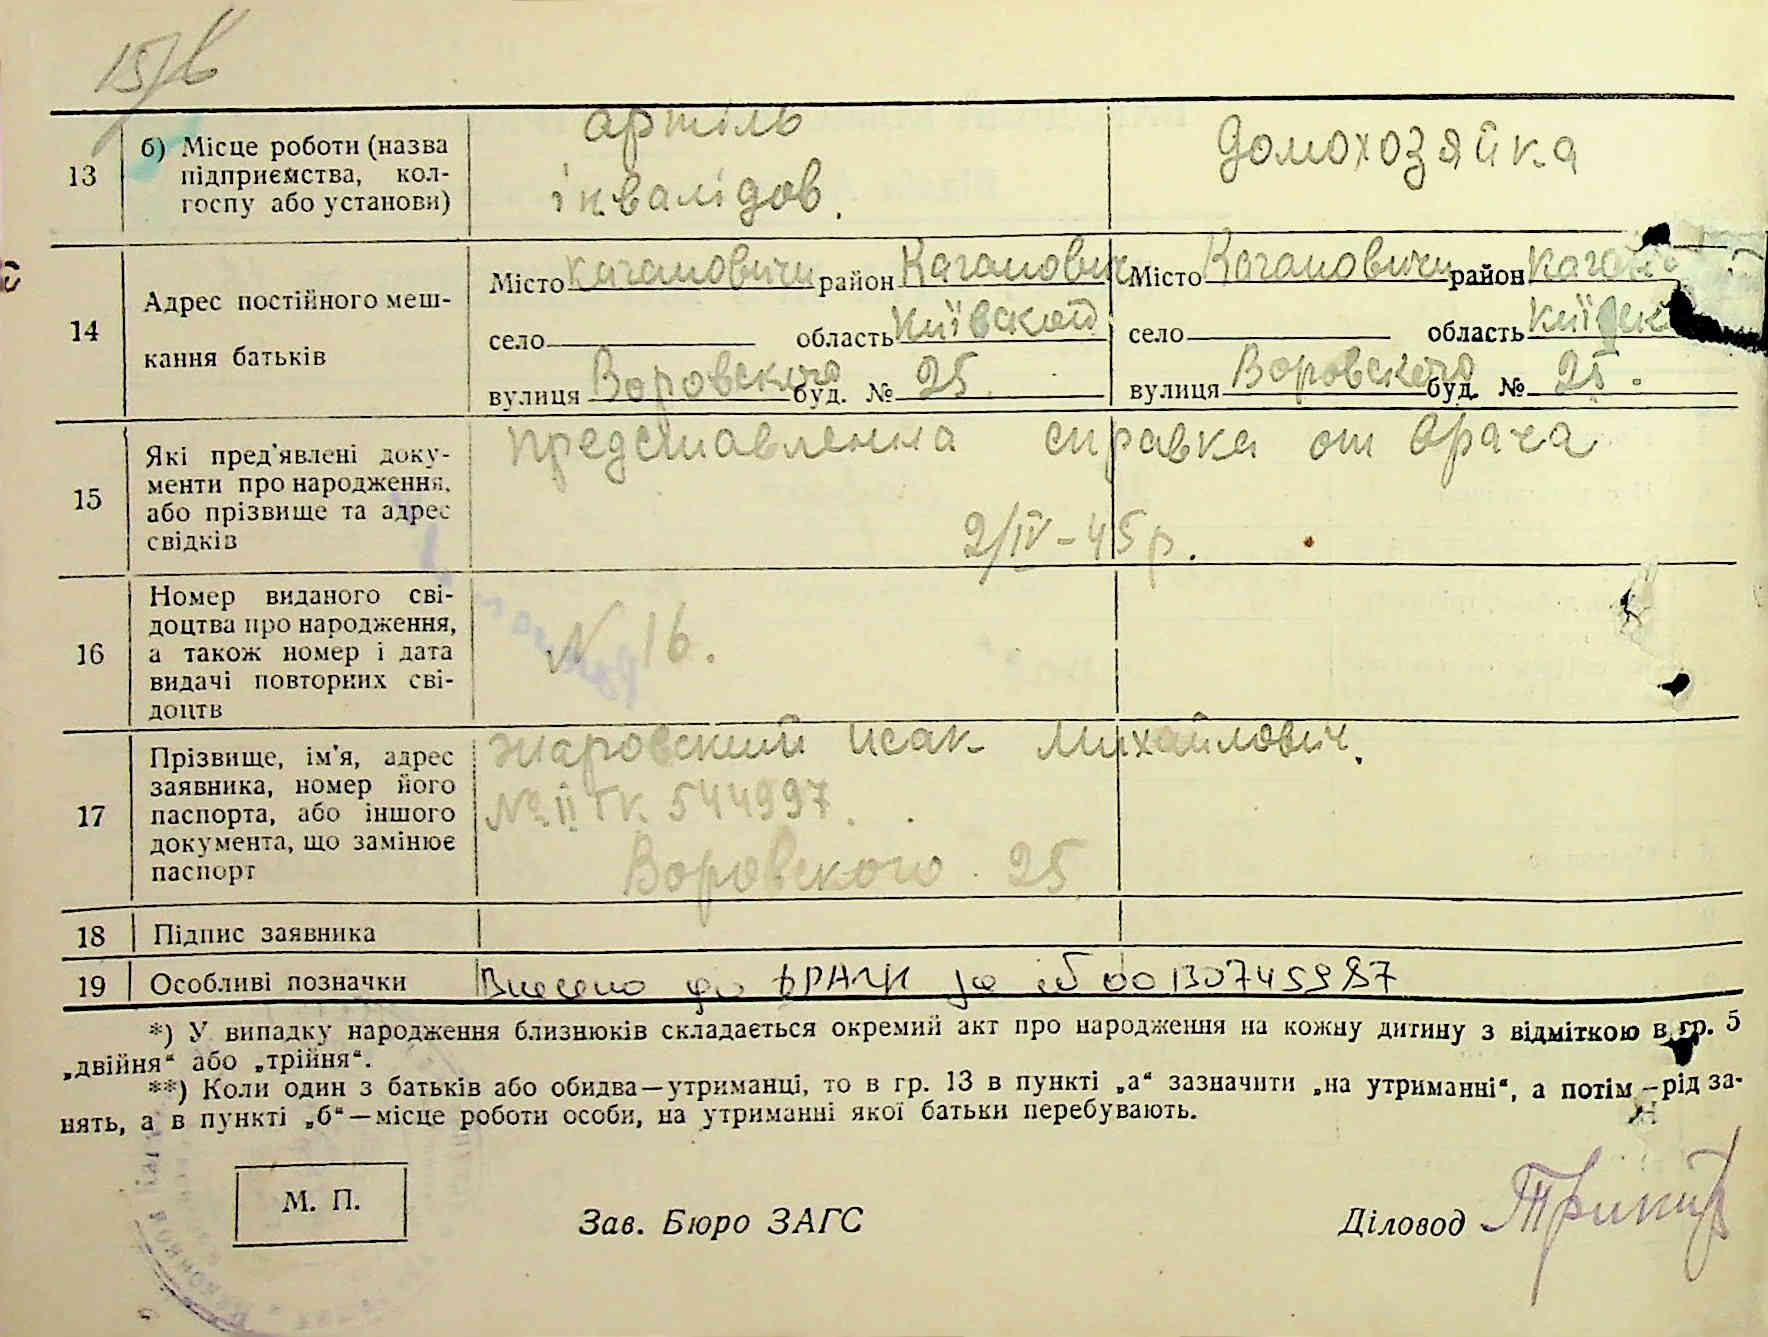 15/в
13
б) Місце роботи (назва
підприємства, кол-
госпу або установи)
артіль
інвалідов.
домохозяйка
14
Адрес постійного меш-
кання батьків
Місто Кагановичи район Каганович
село область Київской
вулиця Воровского буд. № 25.
Місто Кагановичи район Кагано
село область Київск
вулиця Воровского буд. № 25.
15
Які пред'явлені доку-
менти про народження,
або прізвище та адрес
свідків
представленна справка от врача
2/IV-45 р.
16
Номер виданого сві-
доцтва про народження,
а також номер і дата
видачі повторних сві-
доцтв
N 16.
17
Прізвище, ім'я, адрес
заявника, номер його
паспорта, або іншого
документа, що замінює
паспорт
Жаровский Исак Михайлович.
№ II ГК 544997.
Воровского 25
18
Підпис заявника
19
Особливі позначки
Внесено до ДРАЦС за № 00130745987
*) У випадку народження близнюків складається окремий акт про народження на кожну дитину з відміткою в гр. 5
„двійня“ або „трійня“.
**) Коли один з батьків або обидва—утриманці, то в гр. 13 в пункті „а“ зазначити „на утриманні“, а потім—рід за-
нять, а в пункті „б“—місце роботи особи, на утриманні якої батьки перебувають.
М. П.
Зав. Бюро ЗАГС
Діловод